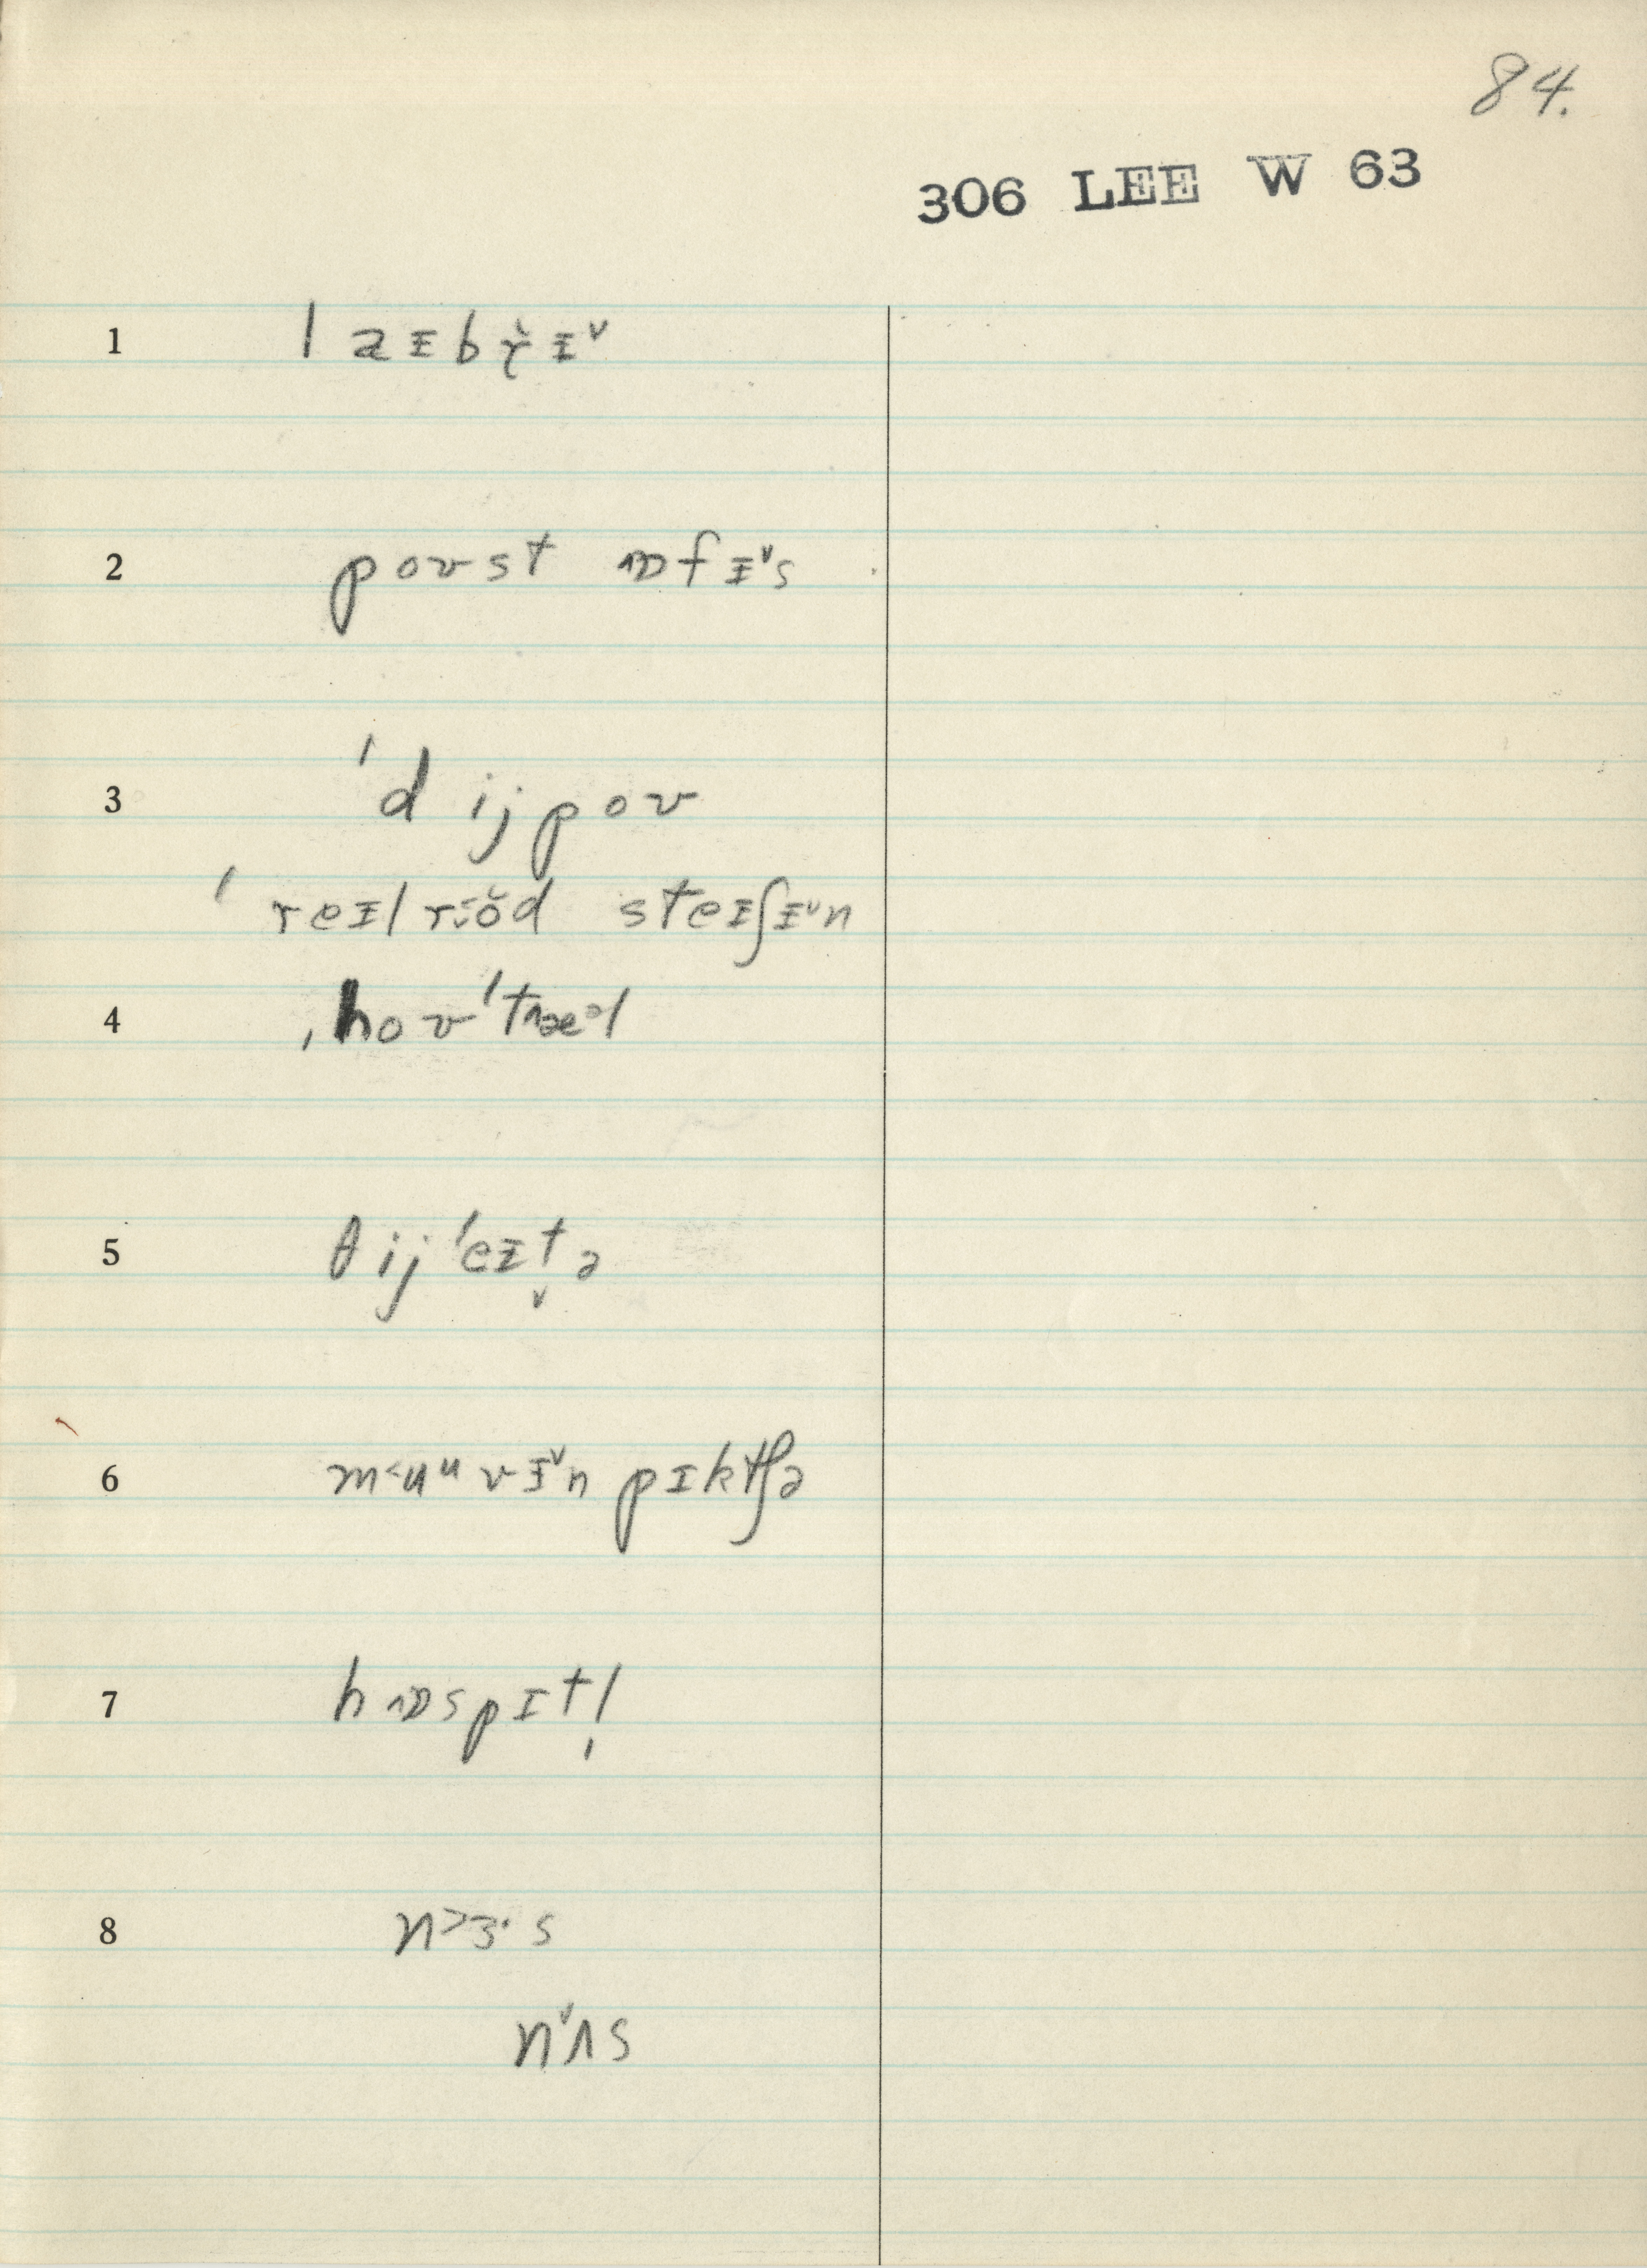 84.
306 LEE W 63
1 laɪbr̆ɪ˅
2 poʊst ɒfɪ˅s
3 ˈdijpoʊ
ˈreɪlrod steɪʃɪ˅n
4 ˌhoʊˈtæᵊl
5 θijˈeɪt̬ə
6 m˂uᵘvɪ˅n pɪktʃə
7 hɒspɪtl̩
8 n˃ɜ·s
n˅ʌs